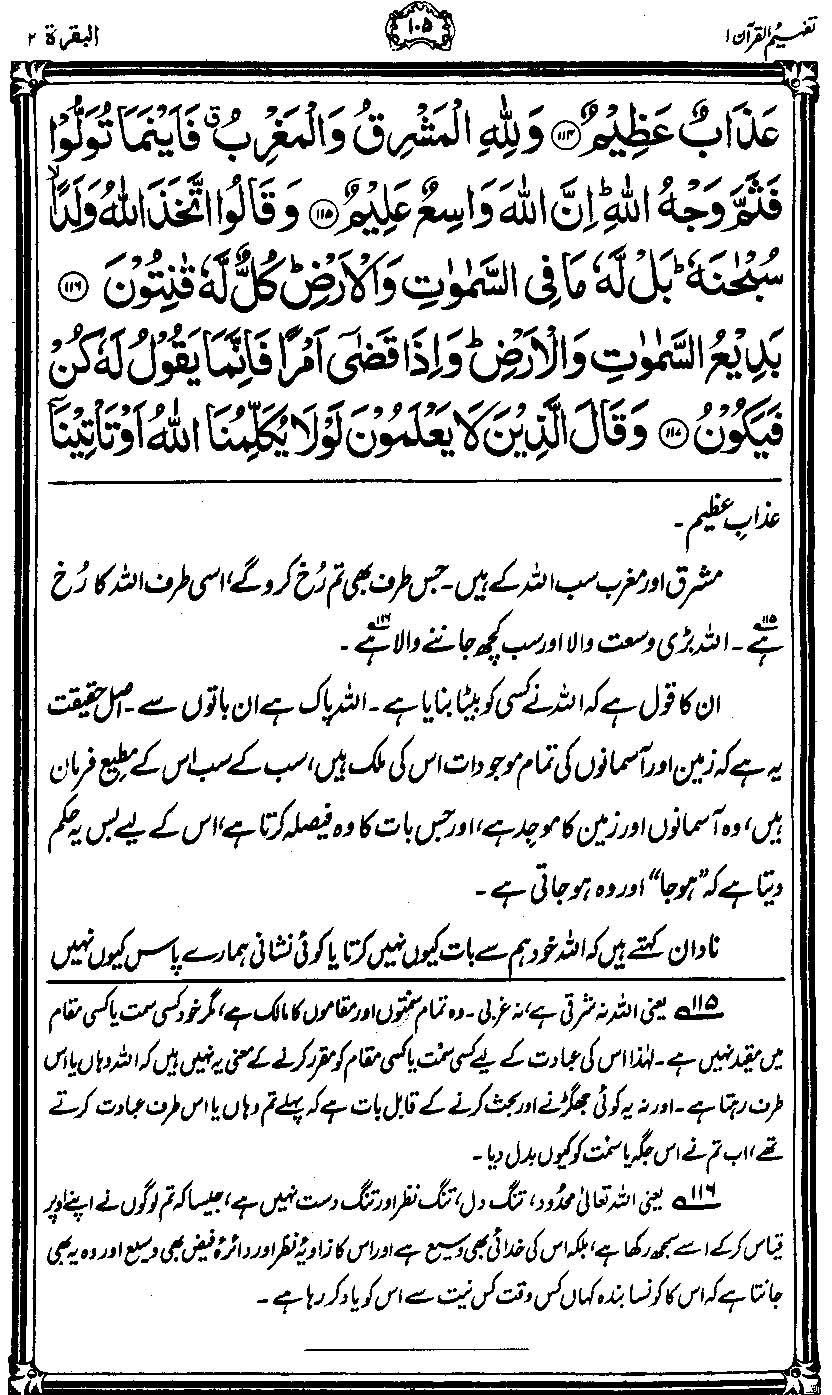 تفہیم القرآن ۱
۱۰۵
البقرۃ ۲
عَذَابٌ عَظِيْمٌ ﴿۱۱۴﴾ وَلِلّٰهِ الْمَشْرِقُ وَالْمَغْرِبُ ۗ فَاَيْنَمَا تُوَلُّوْا
فَثَمَّ وَجْهُ اللّٰهِ ؕ اِنَّ اللّٰهَ وَاسِعٌ عَلِيْمٌ ﴿۱۱۵﴾ وَقَالُوا اتَّخَذَ اللّٰهُ وَلَدًا ۙ
سُبْحٰنَهٗ ؕ بَلْ لَّهٗ مَا فِى السَّمٰوٰتِ وَالْاَرْضِ ؕ كُلٌّ لَّهٗ قٰنِتُوْنَ ﴿۱۱۶﴾
بَدِيْعُ السَّمٰوٰتِ وَالْاَرْضِ ؕ وَاِذَا قَضٰٓى اَمْرًا فَاِنَّمَا يَقُوْلُ لَهٗ كُنْ
فَيَكُوْنُ ﴿۱۱۷﴾ وَقَالَ الَّذِيْنَ لَا يَعْلَمُوْنَ لَوْلَا يُكَلِّمُنَا اللّٰهُ اَوْ تَاْتِيْنَآ
عذابِ عظیم۔
مشرق اور مغرب سب اللہ کے ہیں۔ جس طرف بھی تم رُخ کرو گے، اسی طرف اللہ کا رُخ
ہے۱۱۵۔ اللہ بڑی وسعت والا اور سب کچھ جاننے والا ہے۱۱۶۔
ان کا قول ہے کہ اللہ نے کسی کو بیٹا بنایا ہے۔ اللہ پاک ہے ان باتوں سے۔ اصل حقیقت
یہ ہے کہ زمین اور آسمانوں کی تمام موجودات اس کی ملک ہیں، سب کے سب اس کے مطیع فرمان
ہیں، وہ آسمانوں اور زمین کا موجد ہے، اور جس بات کا وہ فیصلہ کرتا ہے، اس کے لیے بس یہ حکم
دیتا ہے کہ ”ہو جا“ اور وہ ہو جاتی ہے۔
نادان کہتے ہیں کہ اللہ خود ہم سے بات کیوں نہیں کرتا یا کوئی نشانی ہمارے پاس کیوں نہیں
۱۱۵ یعنی اللہ نہ شرقی ہے، نہ غربی۔ وہ تمام سمتوں اور مقاموں کا مالک ہے، مگر خود کسی سمت یا کسی مقام
میں مقید نہیں ہے۔ لہٰذا اس کی عبادت کے لیے کسی سمت یا کسی مقام کو مقرر کرنے کے معنی یہ نہیں ہیں کہ اللہ وہاں یا اس
طرف رہتا ہے۔ اور نہ یہ کوئی جھگڑنے اور بحث کرنے کے قابل بات ہے کہ پہلے تم وہاں یا اس طرف عبادت کرتے
تھے، اب تم نے اس جگہ یا سمت کو کیوں بدل دیا۔
۱۱۶ یعنی اللہ تعالیٰ محدود، تنگ دل، تنگ نظر اور تنگ دست نہیں ہے، جیسا کہ تم لوگوں نے اپنے اوپر
قیاس کر کے اسے سمجھ رکھا ہے، بلکہ اس کی خدائی بھی وسیع ہے اور اس کا زاویۂ نظر اور دائرۂ فیض بھی وسیع اور وہ یہ بھی
جانتا ہے کہ اس کا کونسا بندہ کہاں کس وقت کس نیت سے اس کو یاد کر رہا ہے۔